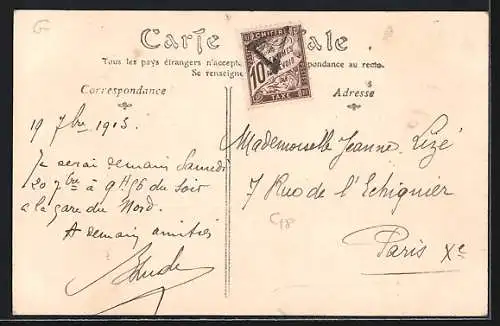 Carte Postale
Tous les pays étrangers n'accept pondance au recto.
Se renseigne
Correspondance
Adresse
CHIFFRE
10
TAXE
19 7bre 1903.
Je serai demain Samedi
20 7bre à 9H56 du Soir
a la gare du Nord.
A demain amitiés
Mademoiselle Jeanne Lizé
7 Rue de l'Echiquier
Paris Xe